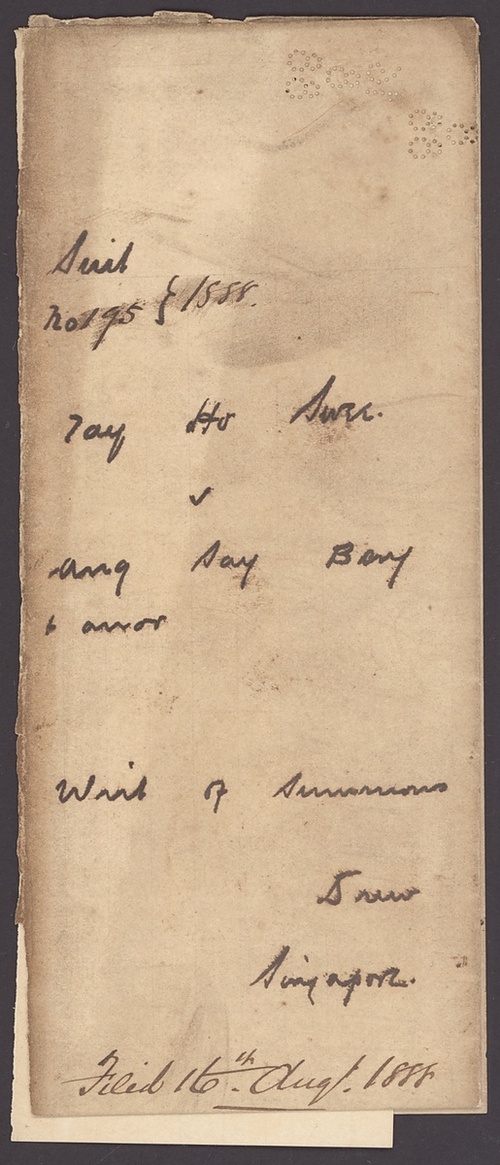 Suit
No 195 } 1888.
Tay Ho Swee.
v
Ang Say Bay
& anor
Writ of Summons
Drew
Singapore.
Filed 16th. Augt. 1888